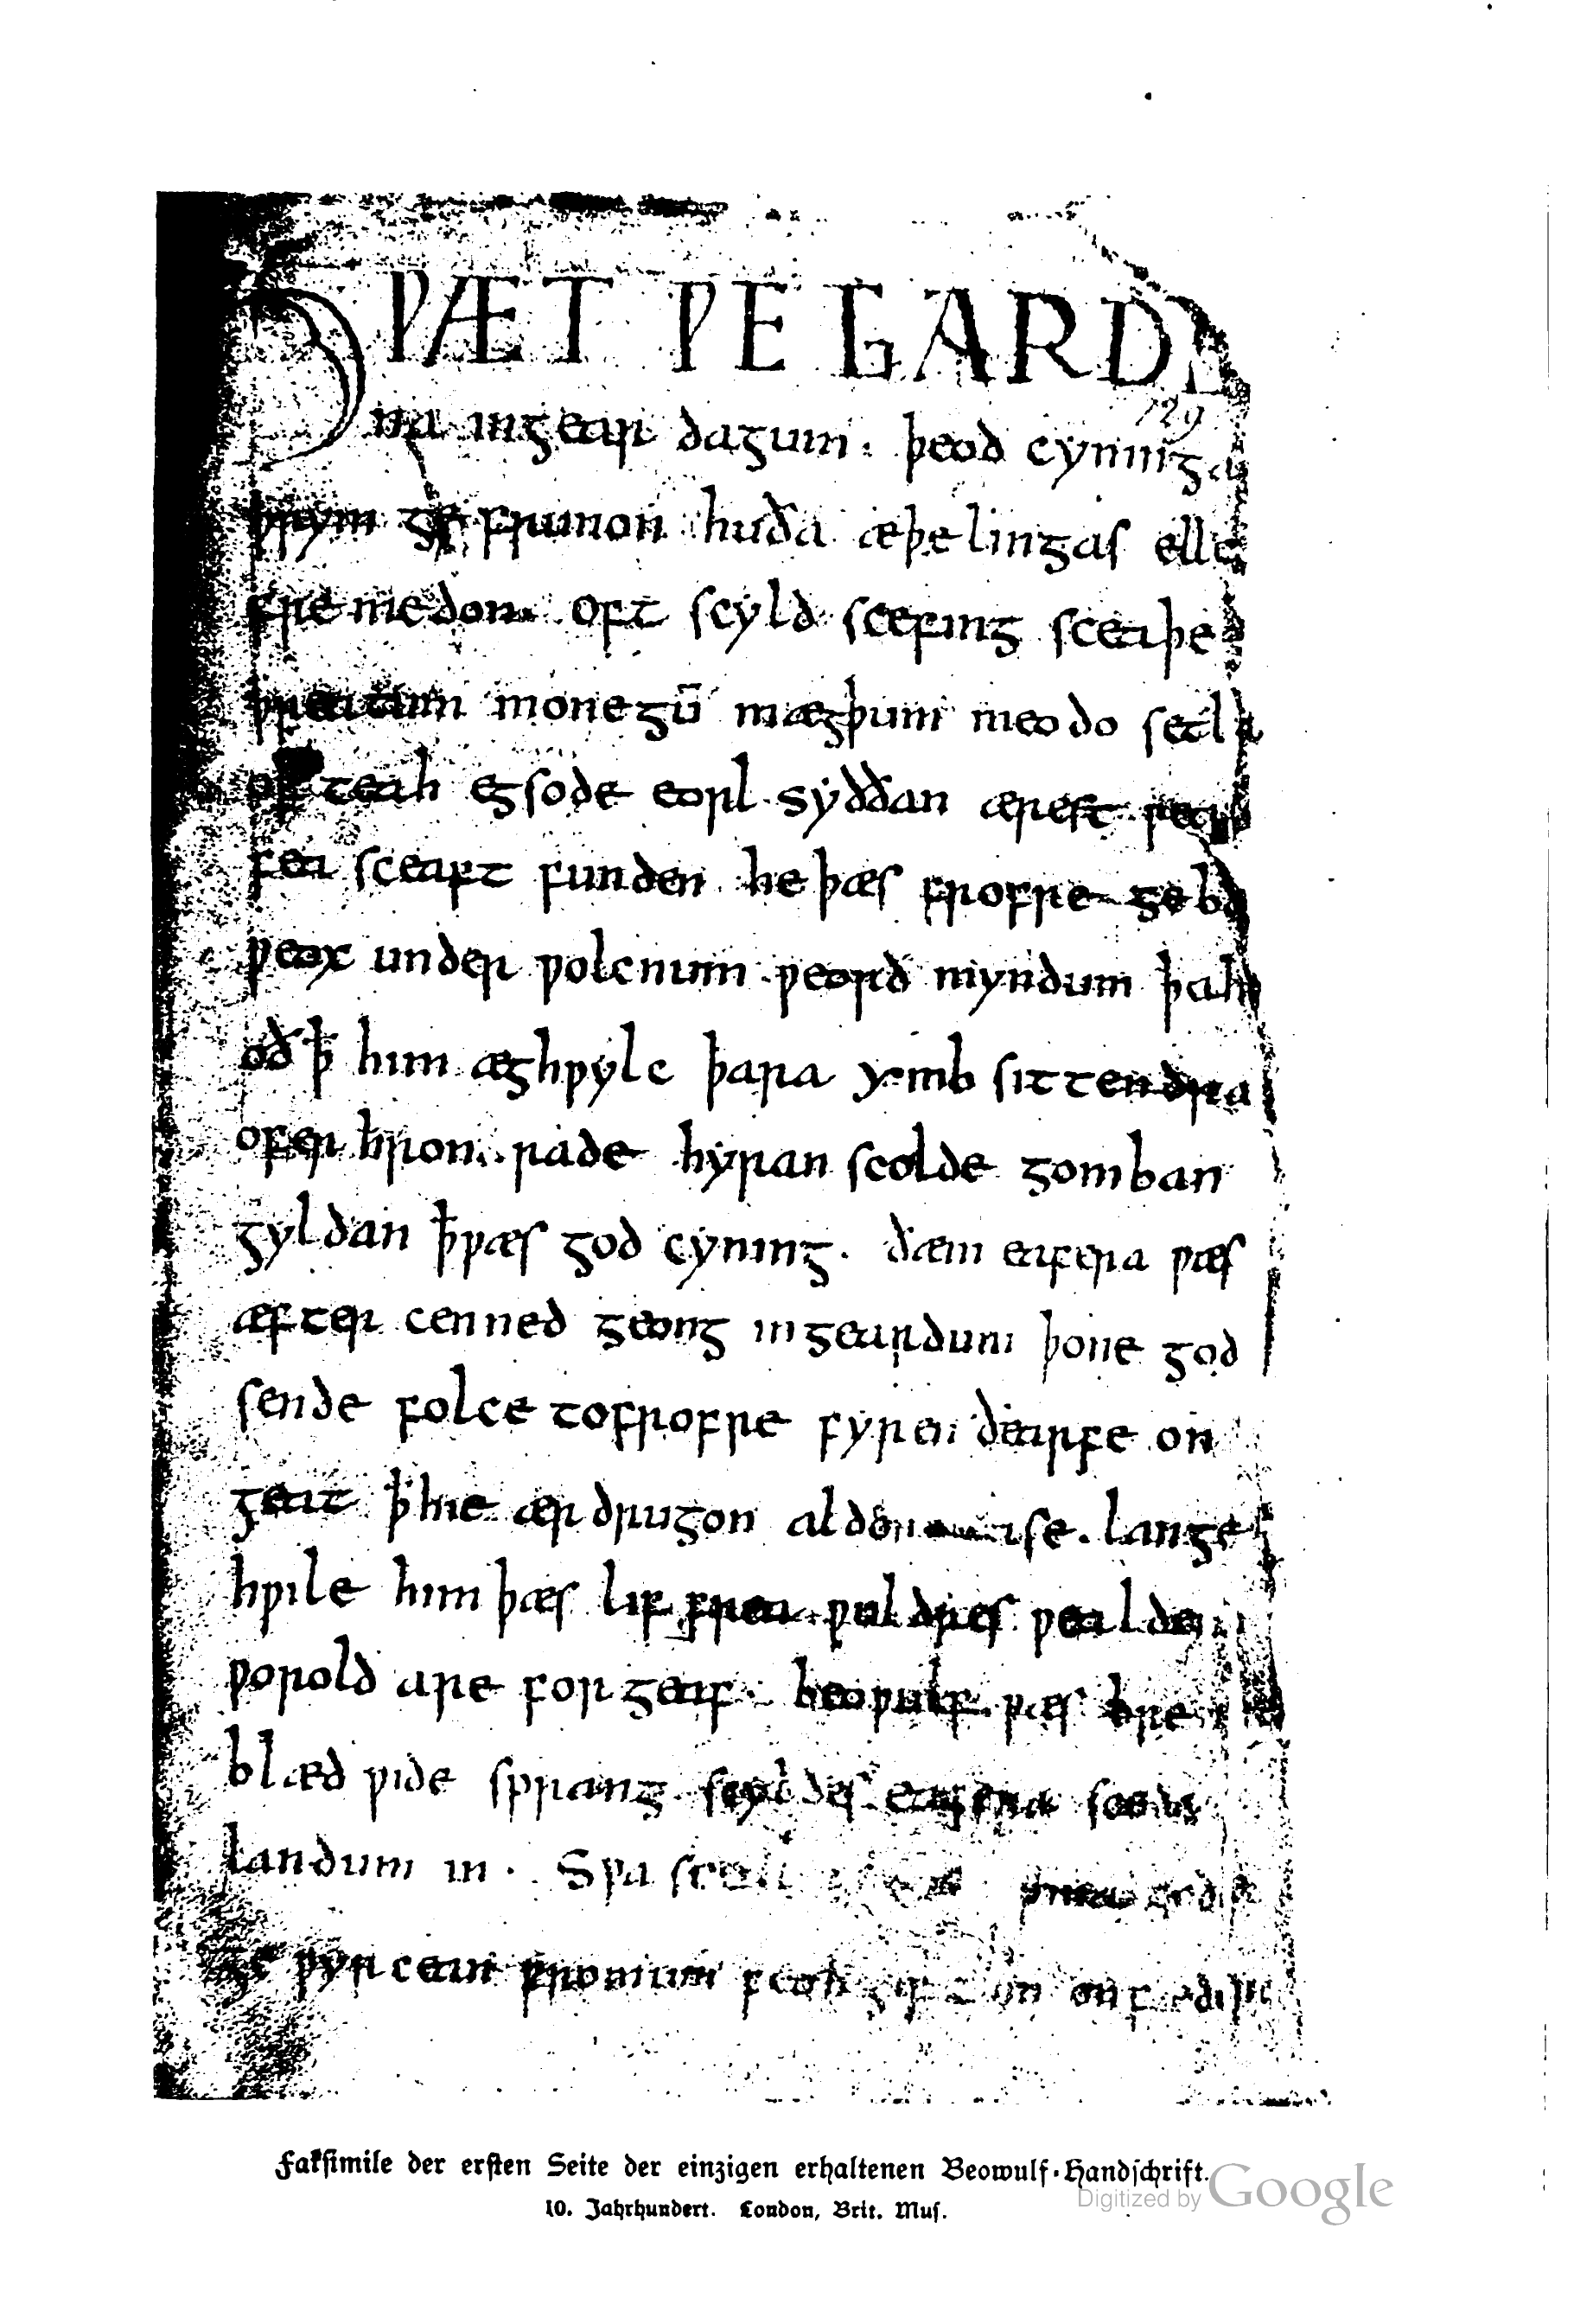 HǷÆT ǷE GARDE
129
na ingear dagum. þeod cyninga
þrym ge frunon huða æþelingas elle
fremedon. oft scyld scefing sceaþe
þreatum monegū mægþum meodo setla
of teah egsode eorl syððan ærest ƿear
fea sceaft funden he þæs frofre geba
ƿeox under ƿolcnum ƿeorð myndum þah
oð ꝥ him æghƿylc þara ymb sittendra
ofer hron rade hyran scolde gomban
gyldan ꝥ ƿæs god cyning. ðæm eafera ƿæs
æfter cenned geong ingeardum þone god
sende folce tofrofre fyren ðearfe on
geat ꝥ hie ær drugon aldor ase. lange
hƿile him þæs lif frea ƿuldres ƿealdend
ƿorold are for geaf. beoƿulf ƿæs breme
blæd ƿide sprang scyldes eafera scede
landum in. Sƿa sceal
ge ƿyrcean fromum feoh giftum on fæder
Faksimile der ersten Seite der einzigen erhaltenen Beowulf-Handschrift.
10. Jahrhundert. London, Brit. Mus.
Digitized by Google